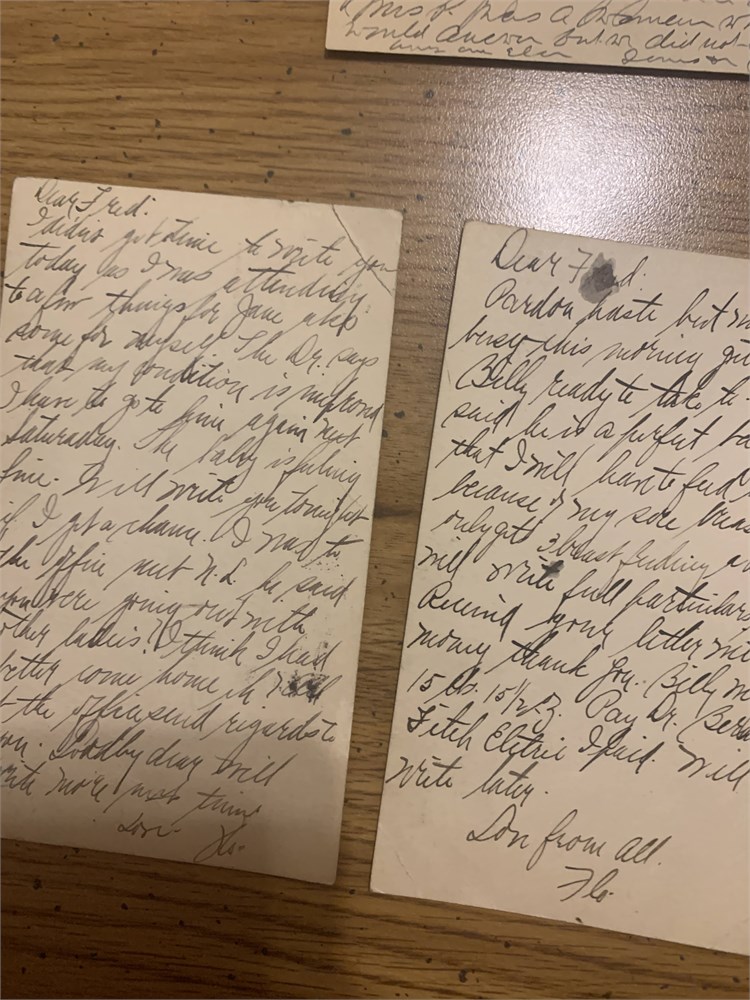 was a woman
would answer but we did not
Dear Fred:
I didn't get time to write you
today as I was attending
to a few things for Jane also
some for myself. The Dr. says
that my condition is improved
I have to go to him again next
Saturday. The baby is feeling
fine. Will write you tonight
if I get a chance. I was to
the office met N.L. he said
you were going out with
other ladies? I think I had
better come home eh
at the office send regards to
you. Goodby dear will
write more next time
Love. Flo.
Dear F
Pardon haste but
busy this morning
Billy ready to take to
said he is a perfect
that I will have to feed
because of my sore
only get 3 breast feeding
will write full particulars
Received your letter
money thank you. Billy
15 lbs. 15½ oz. Pay Dr.
Fitch Electric I paid. Will
write later.
Love from all.
Flo.